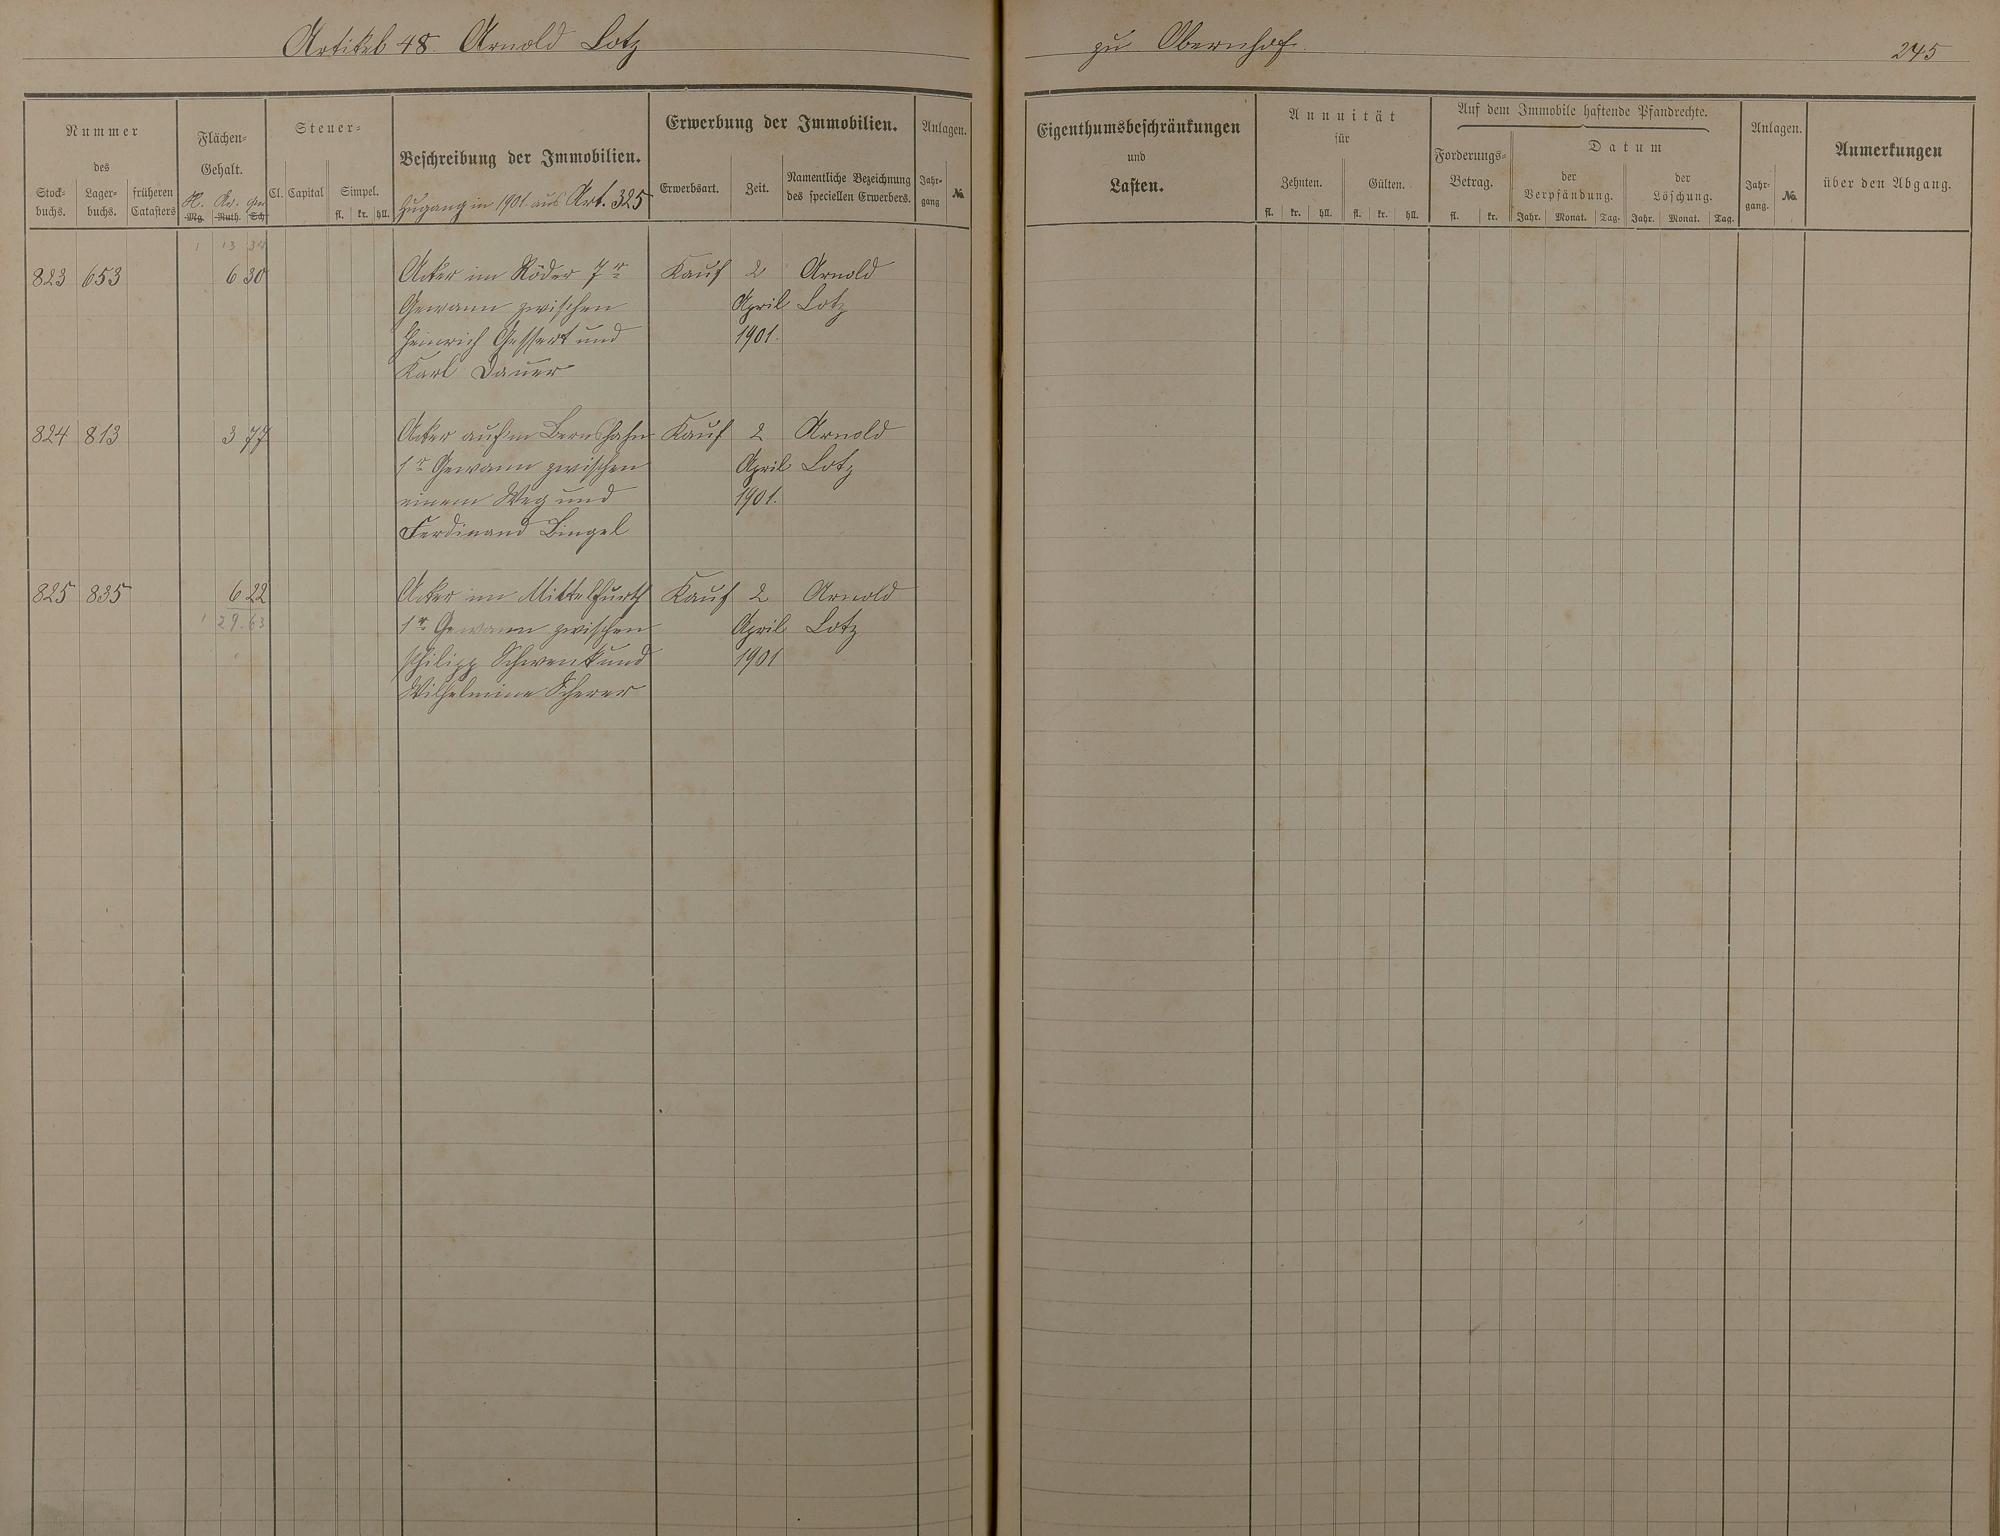 Artikel 48. Arnold Lotz
zu Obernhof.
245
Nummer
des
Stock-
buchs.
Lager-
buchs.
früheren
Catasters
Flächen-
Gehalt.
H. Ar. qm
Mg. Ruth. Sch
Steuer-
Cl. Capital Simpel.
fl. kr. hll.
Beschreibung der Immobilien.
Zugang in 1901 aus Art. 325
Erwerbung der Immobilien.
Erwerbsart. Zeit.
Namentliche Bezeichnung
des speciellen Erwerbers.
Anlagen.
Jahr-
gang
No.
Eigenthumsbeschränkungen
und
Lasten.
Annuität
für
Zehnten. Gülten.
fl. kr. hll. fl. kr. hll.
Auf dem Immobile haftende Pfandrechte.
Forderungs-
Betrag.
fl. kr.
Datum
der
Verpfändung.
Jahr. Monat. Tag.
der
Löschung.
Jahr. Monat. Tag.
Anlagen.
Jahr-
gang.
No.
Anmerkungen
über den Abgang.
1 13 34
823 653 6 30 Acker im Röder 7r Kauf 2 Arnold
Gewann zwischen April Lotz
Heinrich Gessert und 1901.
Karl Dauer
824 813 3 77 Acker auf'm Bernshahn Kauf 2 Arnold
1r Gewann zwischen April Lotz
einem Weg und 1901.
Ferdinand Bingel
825 835 6 22 Acker im Mittelfurth Kauf 2 Arnold
1 29.63 1r Gewann zwischen April Lotz
Philipp Schwenk und 1901
Wilhelmine Scherer